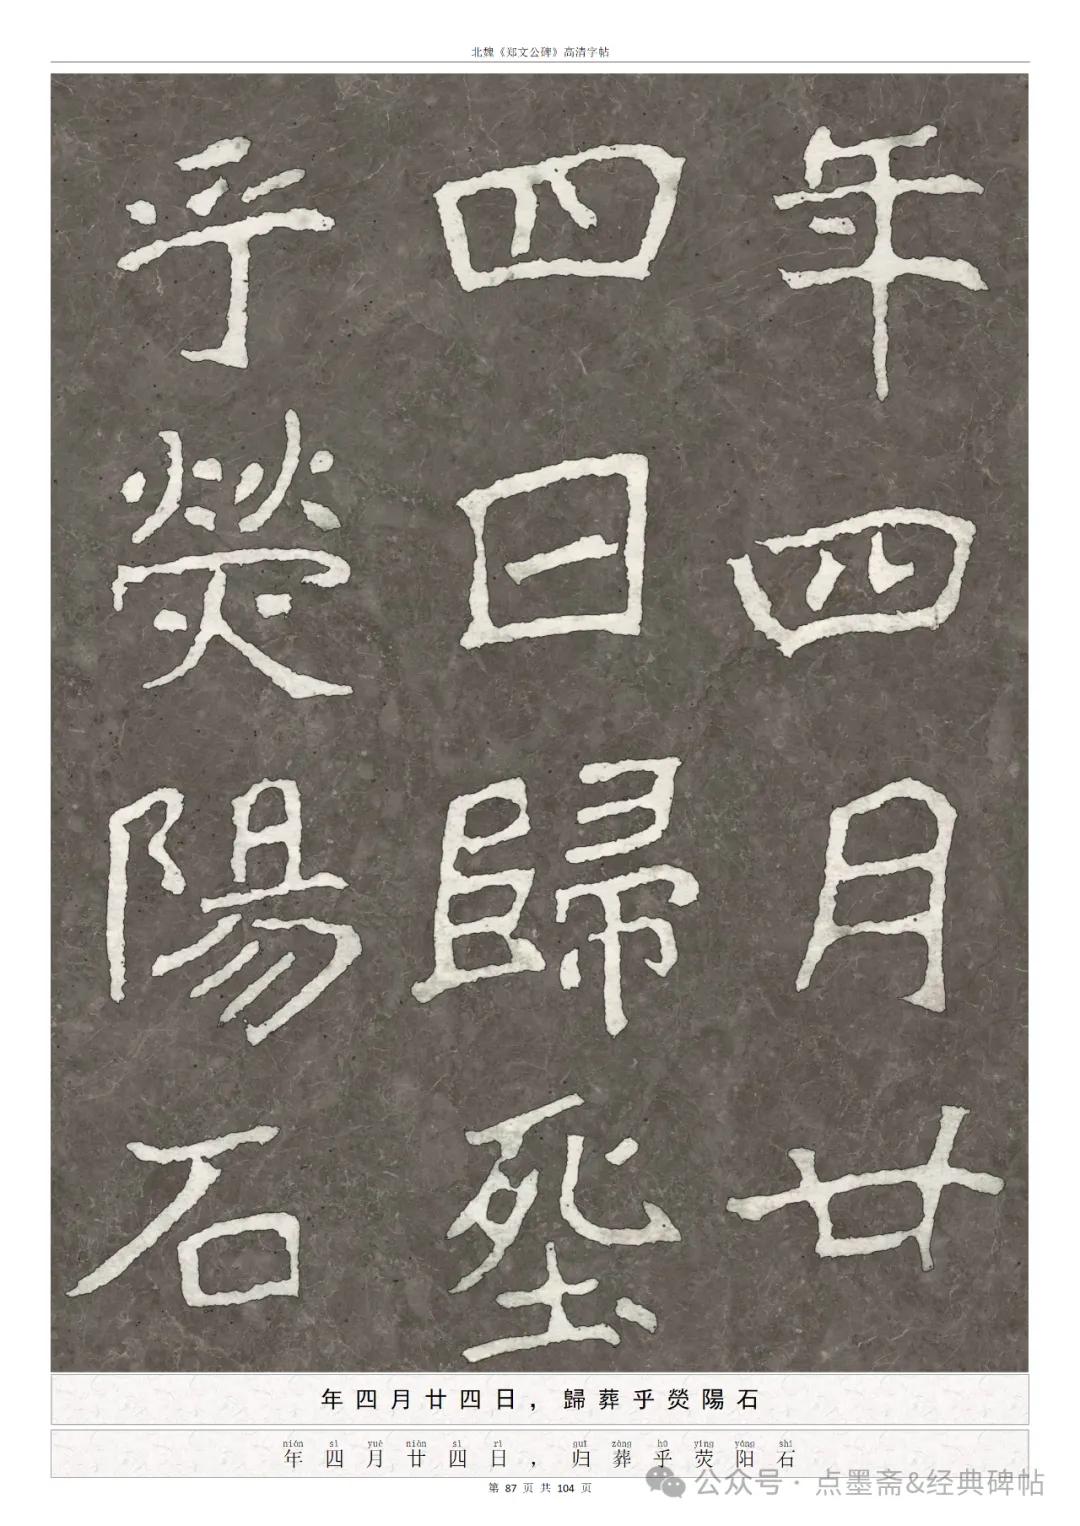 北魏《郑文公碑》高清字帖
年四月廿
四日歸塟
乎熒陽石
年四月廿四日，歸葬乎熒陽石
nián sì yuè niàn sì rì guī zàng hū yíng yáng shí
年四月廿四日，归葬乎荧阳石
第 87 页 共 104 页
公众号 · 点墨斋&经典碑帖